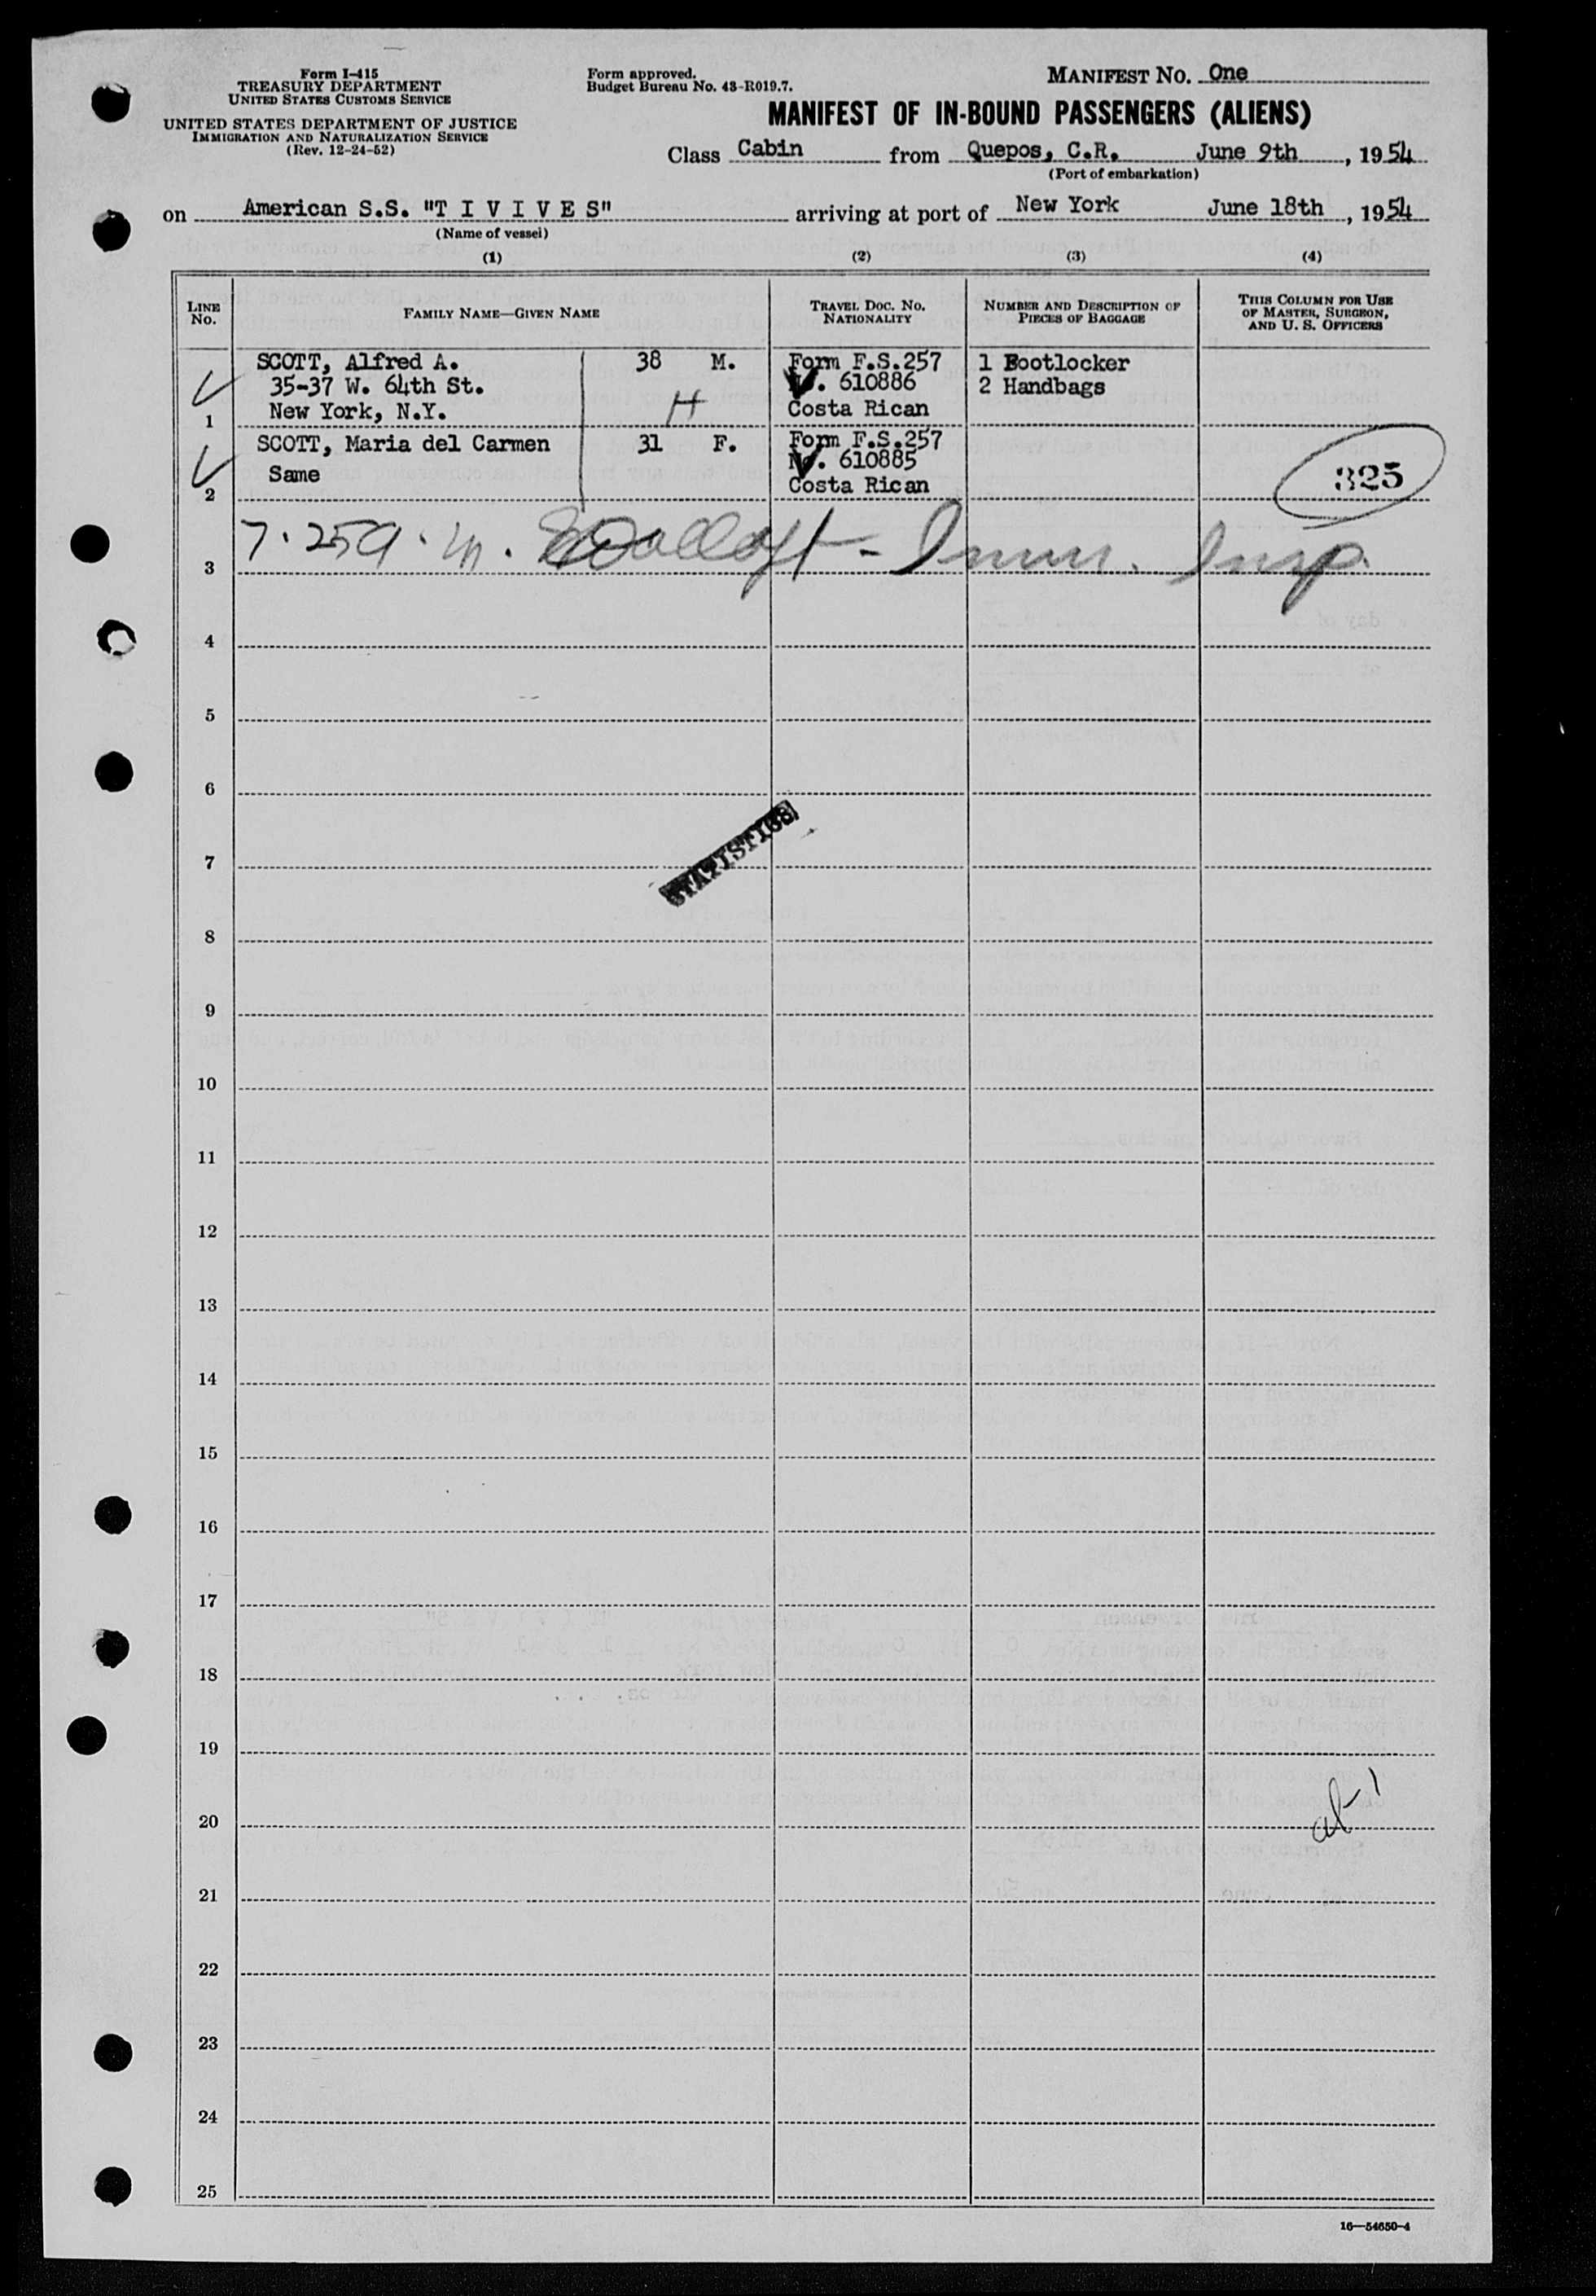 Form I-415
TREASURY DEPARTMENT
UNITED STATES CUSTOMS SERVICE
UNITED STATES DEPARTMENT OF JUSTICE
IMMIGRATION AND NATURALIZATION SERVICE
(Rev. 12-24-52)
Form approved.
Budget Bureau No. 43-R019.7.
MANIFEST NO. One
MANIFEST OF IN-BOUND PASSENGERS (ALIENS)
Class Cabin from Quepos, C.R. June 9th, 1954
(Port of embarkation)
on American S.S. "T I V I V E S" arriving at port of New York June 18th, 1954
(Name of vessel)
(1) (2) (3) (4)
LINE NO.
FAMILY NAME—GIVEN NAME
TRAVEL DOC. NO. NATIONALITY
NUMBER AND DESCRIPTION OF PIECES OF BAGGAGE
THIS COLUMN FOR USE OF MASTER, SURGEON, AND U. S. OFFICERS
SCOTT, Alfred A. 38 M. Form F.S.257 1 Footlocker
35-37 W. 64th St. No. 610886 2 Handbags
1 New York, N.Y. H Costa Rican
SCOTT, Maria del Carmen 31 F. Form F.S.257
Same No. 610885 325
2 Costa Rican
7.25 a.m. - Imm. Insp.
3
4
5
6
STATISTICS
7
8
9
10
11
12
13
14
15
16
17
18
19
20
21
22
23
24
25
16—54650-4